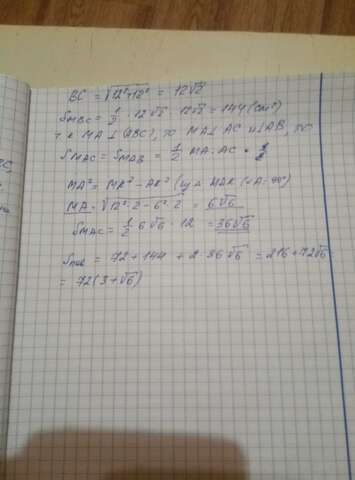 BC = √12²+12² = 12√2
S MBC = 1/2 · 12√2 · 12√2 = 144 (см²)
т.к MA ⊥ (ABC), то MA ⊥ AC и ⊥ AB, то
S MAC = S MAB = 1/2 MA · AC
MA² = MK² - AK² (из Δ MAK (∠A = 90°)
MA = √12² · 2 - 6² · 2 = 6√6
S MAC = 1/2 6√6 · 12 = 36√6
S пов = 72 + 144 + 2 · 36√6 = 216 + 72√6
= 72(3+√6)